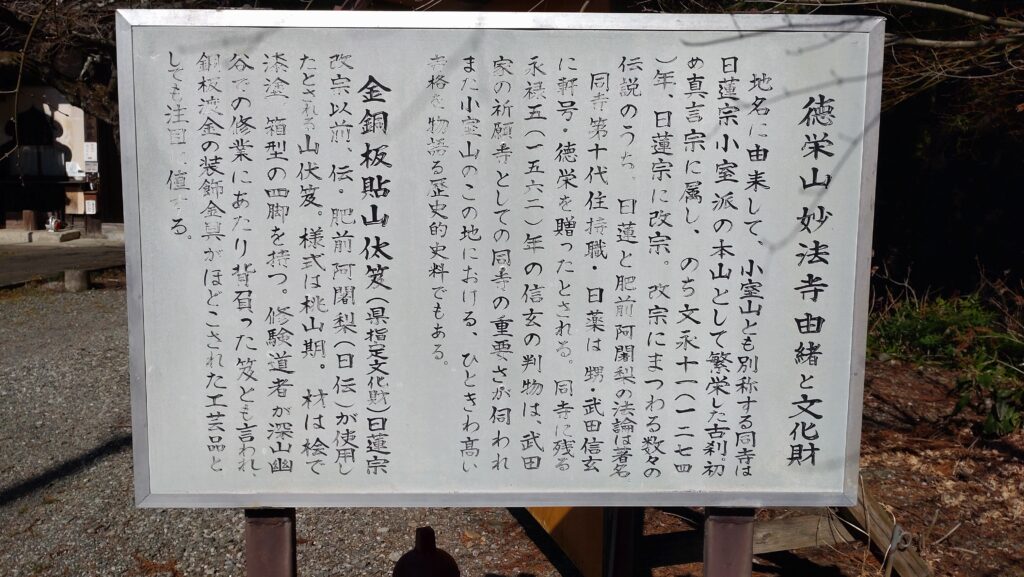 徳栄山妙法寺由緒と文化財
地名に由来して、小室山とも別称する同寺は
日蓮宗小室派の本山として繁栄した古刹。初
め真言宗に属し、のち文永十一(一二七四
)年、日蓮宗に改宗。改宗にまつわる数々の
伝説のうち、日蓮と肥前阿闍梨の法論は著名
同寺第十代住持職・日薬は甥・武田信玄
に軒号・徳栄を贈ったとされる。同寺に残る
永禄五(一五六二)年の信玄の判物は、武田
家の祈願寺としての同寺の重要さが伺われ
また小室山のこの地における、ひときわ高い
寺格を物語る歴史的史料でもある。
金銅板貼山伏笈(県指定文化財)日蓮宗
改宗以前、伝・肥前阿闍梨(日伝)が使用し
たとされる山伏笈。様式は桃山期。材は桧で
漆塗、箱型の四脚を持つ。修験道者が深山幽
谷での修業にあたり背負った笈とも言われ、
銅板渡金の装飾金具がほどこされた工芸品と
しても注目に値する。